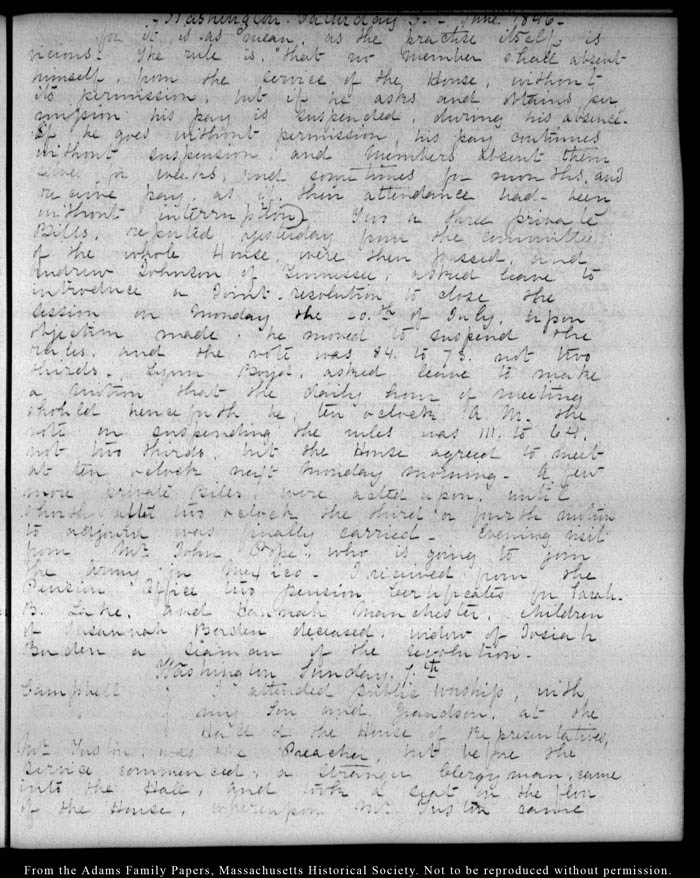 Washington. Saturday 6. June. 1846.
for it is as mean, as the practise itself is
vicious. The rule is, "that no member shall absent
himself, from the service of the House, without
its permission, but if he asks and obtains per
mission his pay is suspended, during his absence.
If he goes without permission, his pay continues
without suspension, and members absent them
selves for weeks, and sometimes for months, and
receive pay, as if their attendance had been
without interruption). Two or three private
Bills, reported yesterday from the committee
of the whole House, were then passed, and
Andrew Johnson of Tennessee, asked leave to
introduce a Joint-resolution to close the
session on Monday the 20.th of July, upon
objection made, he moved to suspend the
rules, and the vote was 84. to 75. not two
thirds. Lynn Boyd, asked leave to make
a motion that the daily hour of meeting
should henceforth be, ten o'clock A.M. the
vote on suspending the rules was 111. to 64.
not two thirds, but the House agreed to meet
at ten o'clock next Monday morning. A few
more private Bills, were acted upon, until
shortly after two o'clock the third or fourth motion
to adjourn was finally carried. Evening visit
from Mr. John Pope, who is going to join
the Army in Mexico. I received from the
Pension Office two pension certificates for Sarah.
B. Lake, and Hannah Manchester, children
of Susannah Borden deceased, widow of Josiah
Borden a seaman of the revolution.
Washington Sunday 7.th
Campbell I attended public worship, with
my Son and Grandson, at the
Hall of the House of Representatives,
Mr. Tuston, was the Preacher, but before the
service commenced, a stranger Clergyman, came
into the Hall, and took a seat on the floor
of the House, whereupon Mr. Tuston came
From the Adams Family Papers, Massachusetts Historical Society. Not to be reproduced without permission.